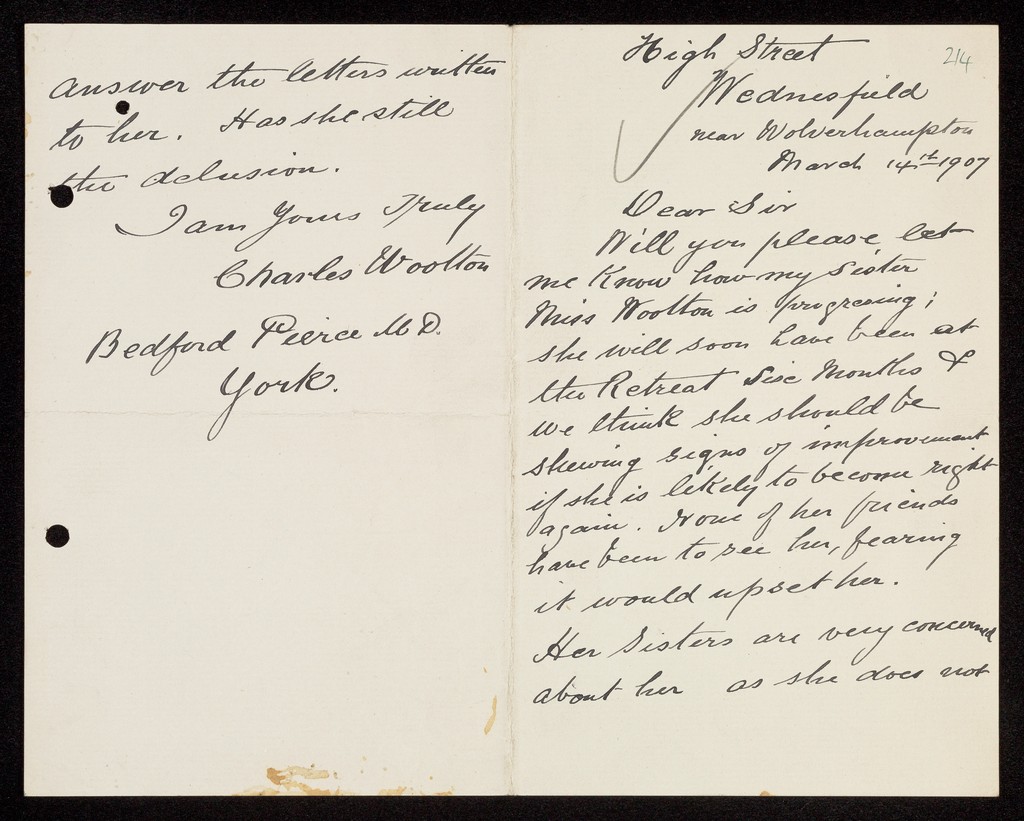 214
High Street
Wednesfield
near Wolverhampton
March 14th 1907
Dear Sir
Will you please let
me know how my Sister
Miss Wootton is progresing;
she will soon have been at
the Retreat Six Months &
we think she should be
shewing signs of improvement
if she is likely to become right
again. None of her friends
have been to see her, fearing
it would upset her.
Her Sisters are very concerned
about her as she does not
answer the letters written
to her. Has she still
the delusion.
I am Yours Truly
Charles Wootton
Bedford Pierce M.D.
York.